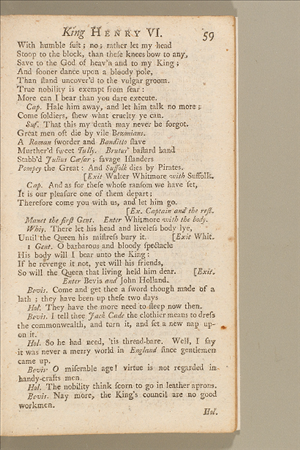 King HENRY VI. 59
With humble suit; no; rather let my head
Stoop to the block, than these knees bow to any,
Save to the God of heav'n and to my King;
And sooner dance upon a bloody pole,
Than stand uncover'd to the vulgar groom.
True nobility is exempt from fear:
More can I bear than you dare execute.
Cap. Hale him away, and let him talk no more;
Come soldiers, shew what cruelty ye can.
Suf. That this my death may never be forgot.
Great men oft die by vile Bezonians.
A Roman sworder and Banditto slave
Murther'd sweet Tully. Brutus' bastard hand
Stabb'd Julius Cæsar; savage Islanders
Pompey the Great: And Suffolk dies by Pirates.
[Exit Walter Whitmore with Suffolk.
Cap. And as for these whose ransom we have set,
It is our pleasure one of them depart;
Therefore come you with us, and let him go.
[Ex. Captain and the rest.
Manet the first Gent. Enter Whitmore with the body.
Whit. There let his head and liveless body lye,
Until the Queen his mistress bury it. [Exit Whit.
1 Gent. O barbarous and bloody spectacle
His body will I bear unto the King:
If he revenge it not, yet will his friends,
So will the Queen that living held him dear. [Exit.
Enter Bevis and John Holland.
Bevis. Come and get thee a sword though made of a
lath; they have been up these two days
Hol. They have the more need to sleep now then.
Bevis. I tell thee Jack Cade the clothier means to dress
the commonwealth, and turn it, and set a new nap up-
on it.
Hol. So he had need, 'tis thread-bare. Well, I say
it was never a merry world in England since gentlemen
came up.
Bevis. O miserable age! virtue is not regarded in
handy-crafts men.
Hol. The nobility think scorn to go in leather aprons.
Bevis. Nay more, the King's council are no good
workmen.
Hol.